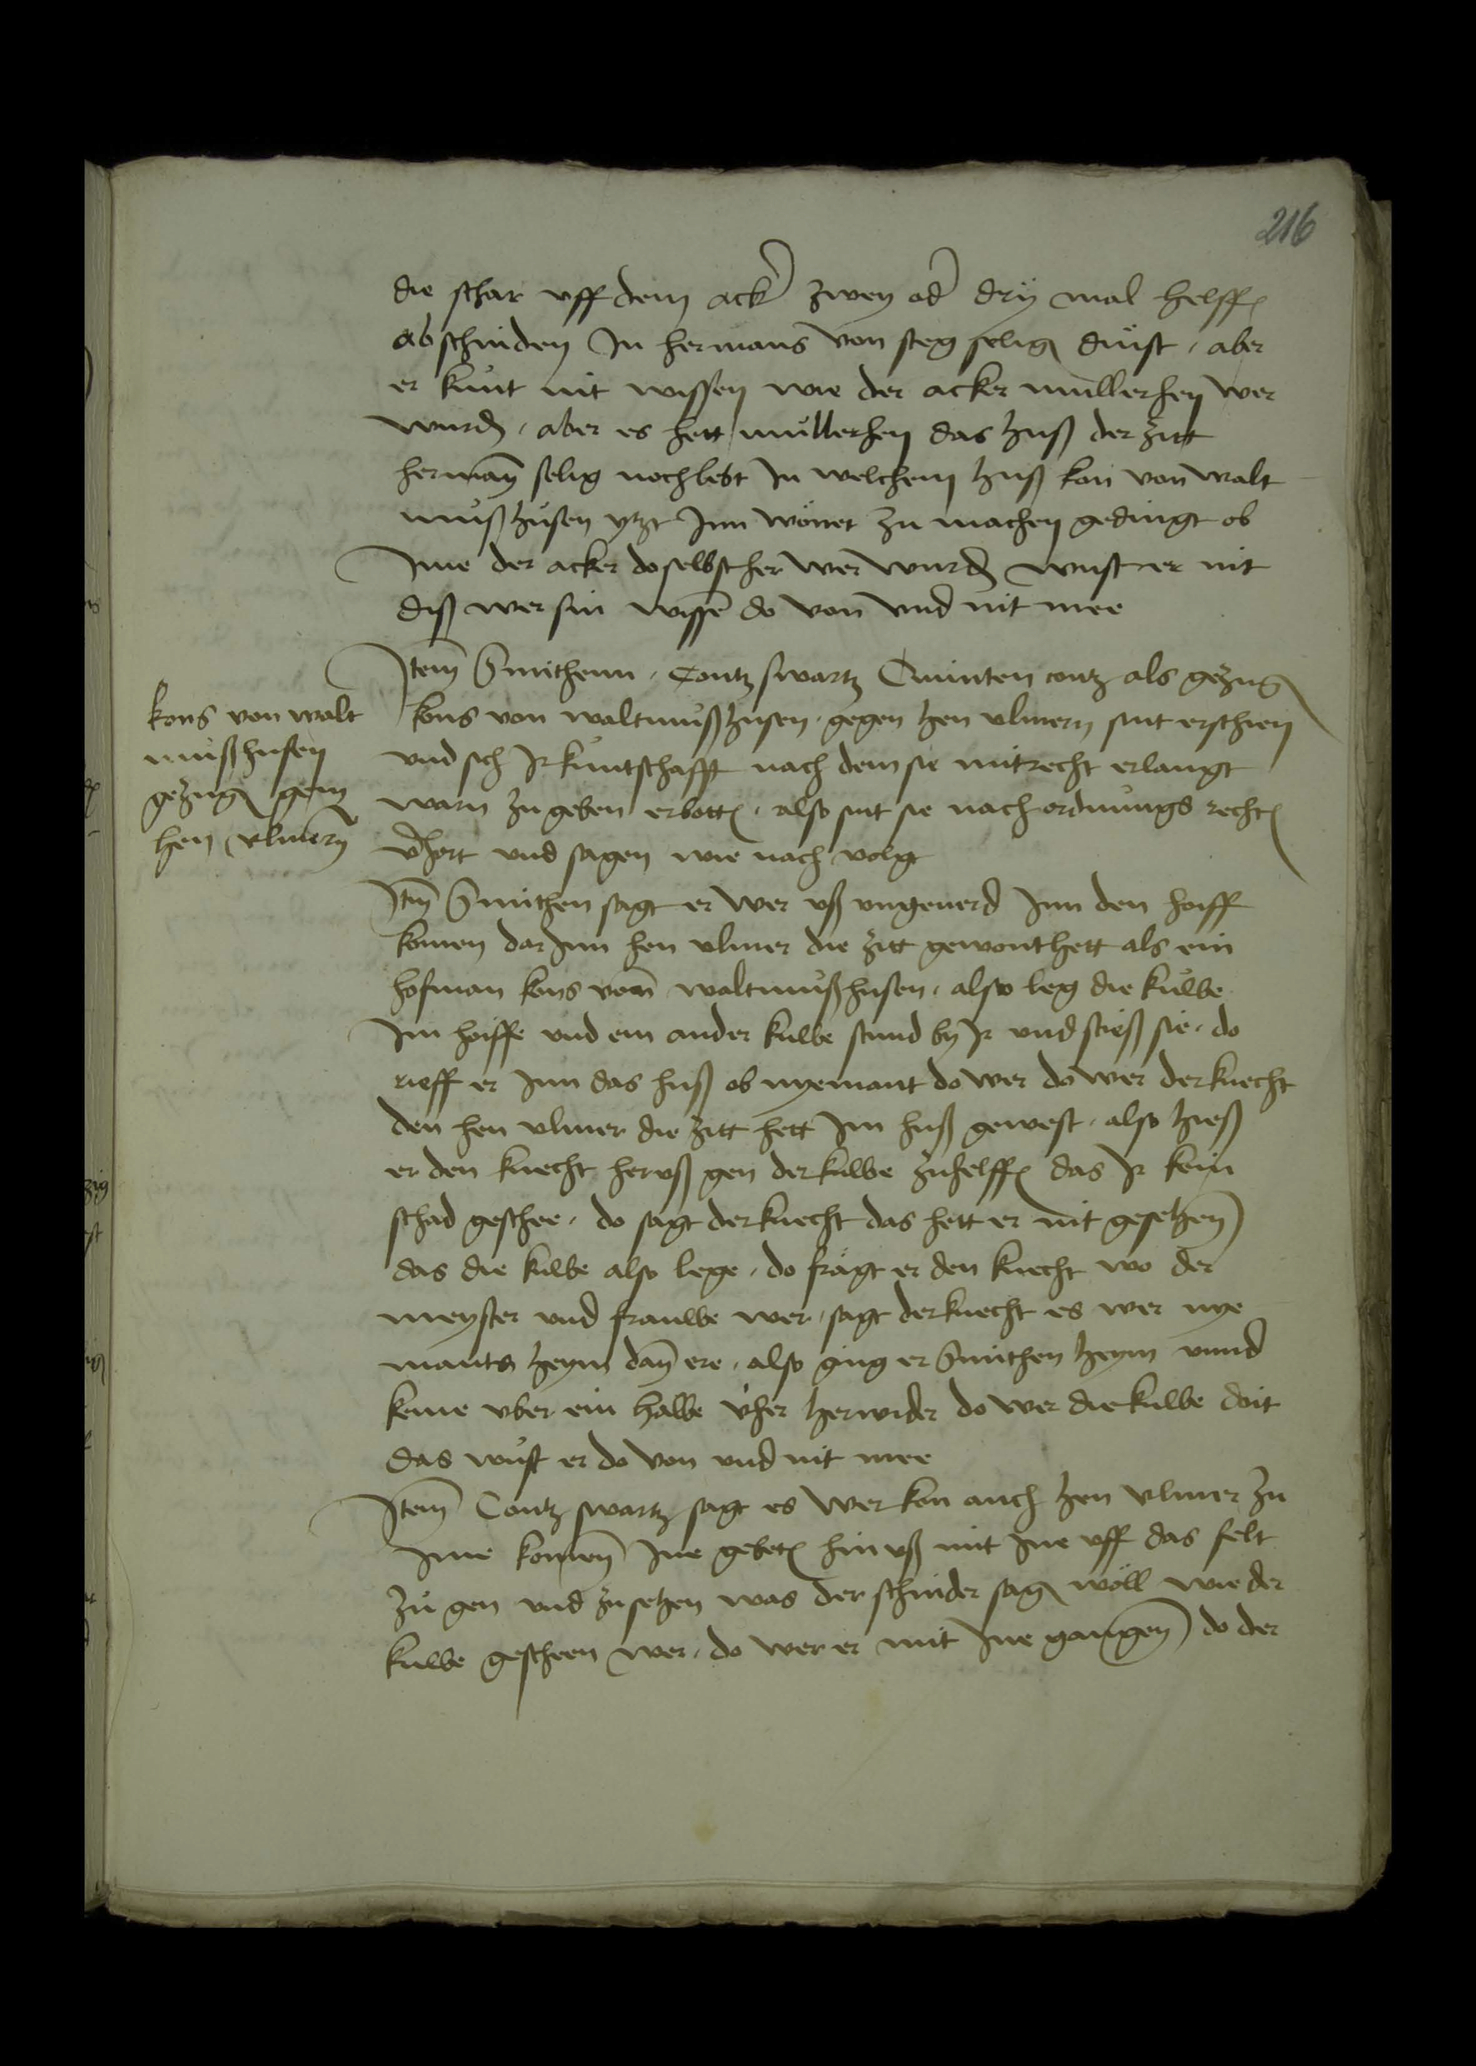 216
die schar uff dem acker zwey oder dry mal helffen
abschniden In hermans von steg selig dinst, aber
er kunt nit wissen wie der acker mullerhen wer
wurd, aber es hett mullerhen das huß der zitt
herman selig noch lebt In welchem huß kon von walt
mußhusen ytzt Inn wonet zu machen gedingt ob
Ime der acker doselbst her wer wurd wust er nit
diß wer sin wissen do von und nit mee
Item Smithenn, Contz swartz Quinten contz als gezug
kons von waltmußhusen, gegen hen ulmern sint erschien
und sich Ir kuntschafft nach dem sie mit recht erlangt
warn zu geben erbotten, also sint sie nach ordnungs rechten
verhort und sagen wie nach volgt
kons von walt
mußhusen
gezug gein
hen ulmern
Item Smithen sagt er wer uß ungeuerd Inn den hoiff
komen dar Inn hen ulmer die zitt gewont hett als ein
hofman kons vonn waltmußhusen, also leg die kuwe
Im hoiffe und ein ander kuwe stund by Ir und stieß sie, do
rieff er Inn das huß ob nyemant do wer do wer der knecht
den hen ulmer die zitt hett Im huß gewest, also hieß
er den knecht heruß gen der kuwe zuhelffen das Ir kein
schad geschee, do sagt der knecht das hett er nit gesehen
das die kuwe also lege, do fragt er den knecht wo der
meyster und frauwe wer, sagt der knecht es wer nye
mants heym dan ere, also ging er Smithen heym unnd
keme uber ein halbe uher herwider do wer die kuwe doit
das wust er do von und nit mee
Item Contz swartz sagt es wer kon auch hen ulmer zu
Ime komen Ine gebeten hin uß mit Ine uff das felt
zu gen und zusehen was der schinder sag woll wie der
kuwe gescheen wer, do wer er mit Ine gangen do der